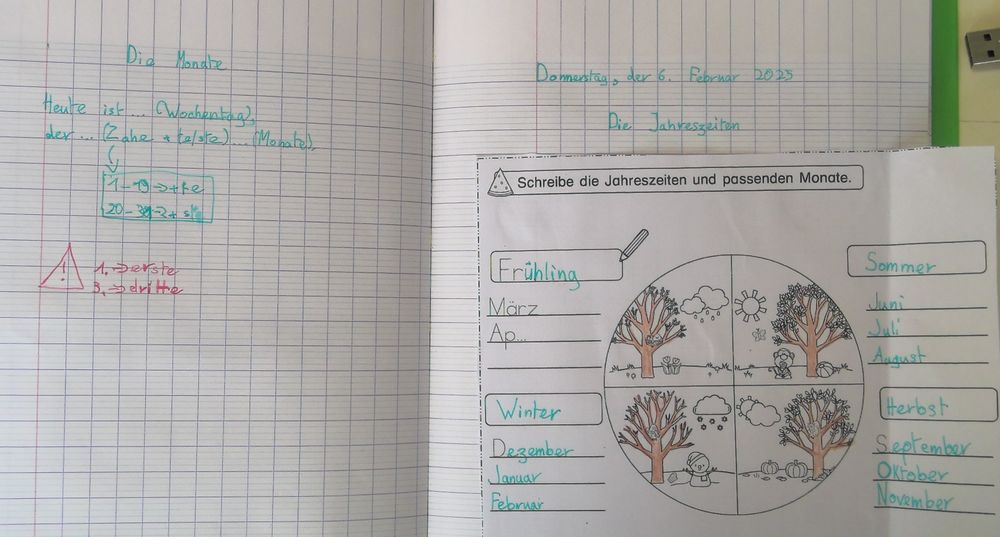 Die Monate
Heute ist ... (Wochentag),
der ... (Zahe + te/ste) ... (Monate).
1-19 → + te
20-31 → + st
! 1. → erste
3. → dritte
Donnerstag, der 6. Februar 2025
Die Jahreszeiten
Schreibe die Jahreszeiten und passenden Monate.
Frühling
März
Ap...
Sommer
Juni
Juli
August
Winter
Dezember
Januar
Februar
Herbst
September
Oktober
November